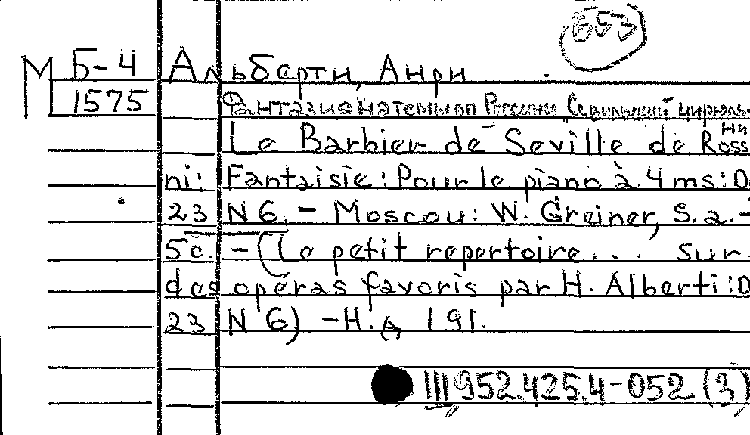 653
М Б-4 Альберти, Анри
1575 Фантазия на темы оп. Россини "Севильский цирюль-
ник
Le Barbier de Seville de Ross
ni: Fantaisie: Pour le piano à 4 ms: O
23 N 6. - Moscou: W. Greiner, s.a. -
5c. - (Le petit repertoire... sur
des opéras favoris par H. Alberti: O
23 N 6) - Н. д. 191.
III 952.425.4-052 (3)